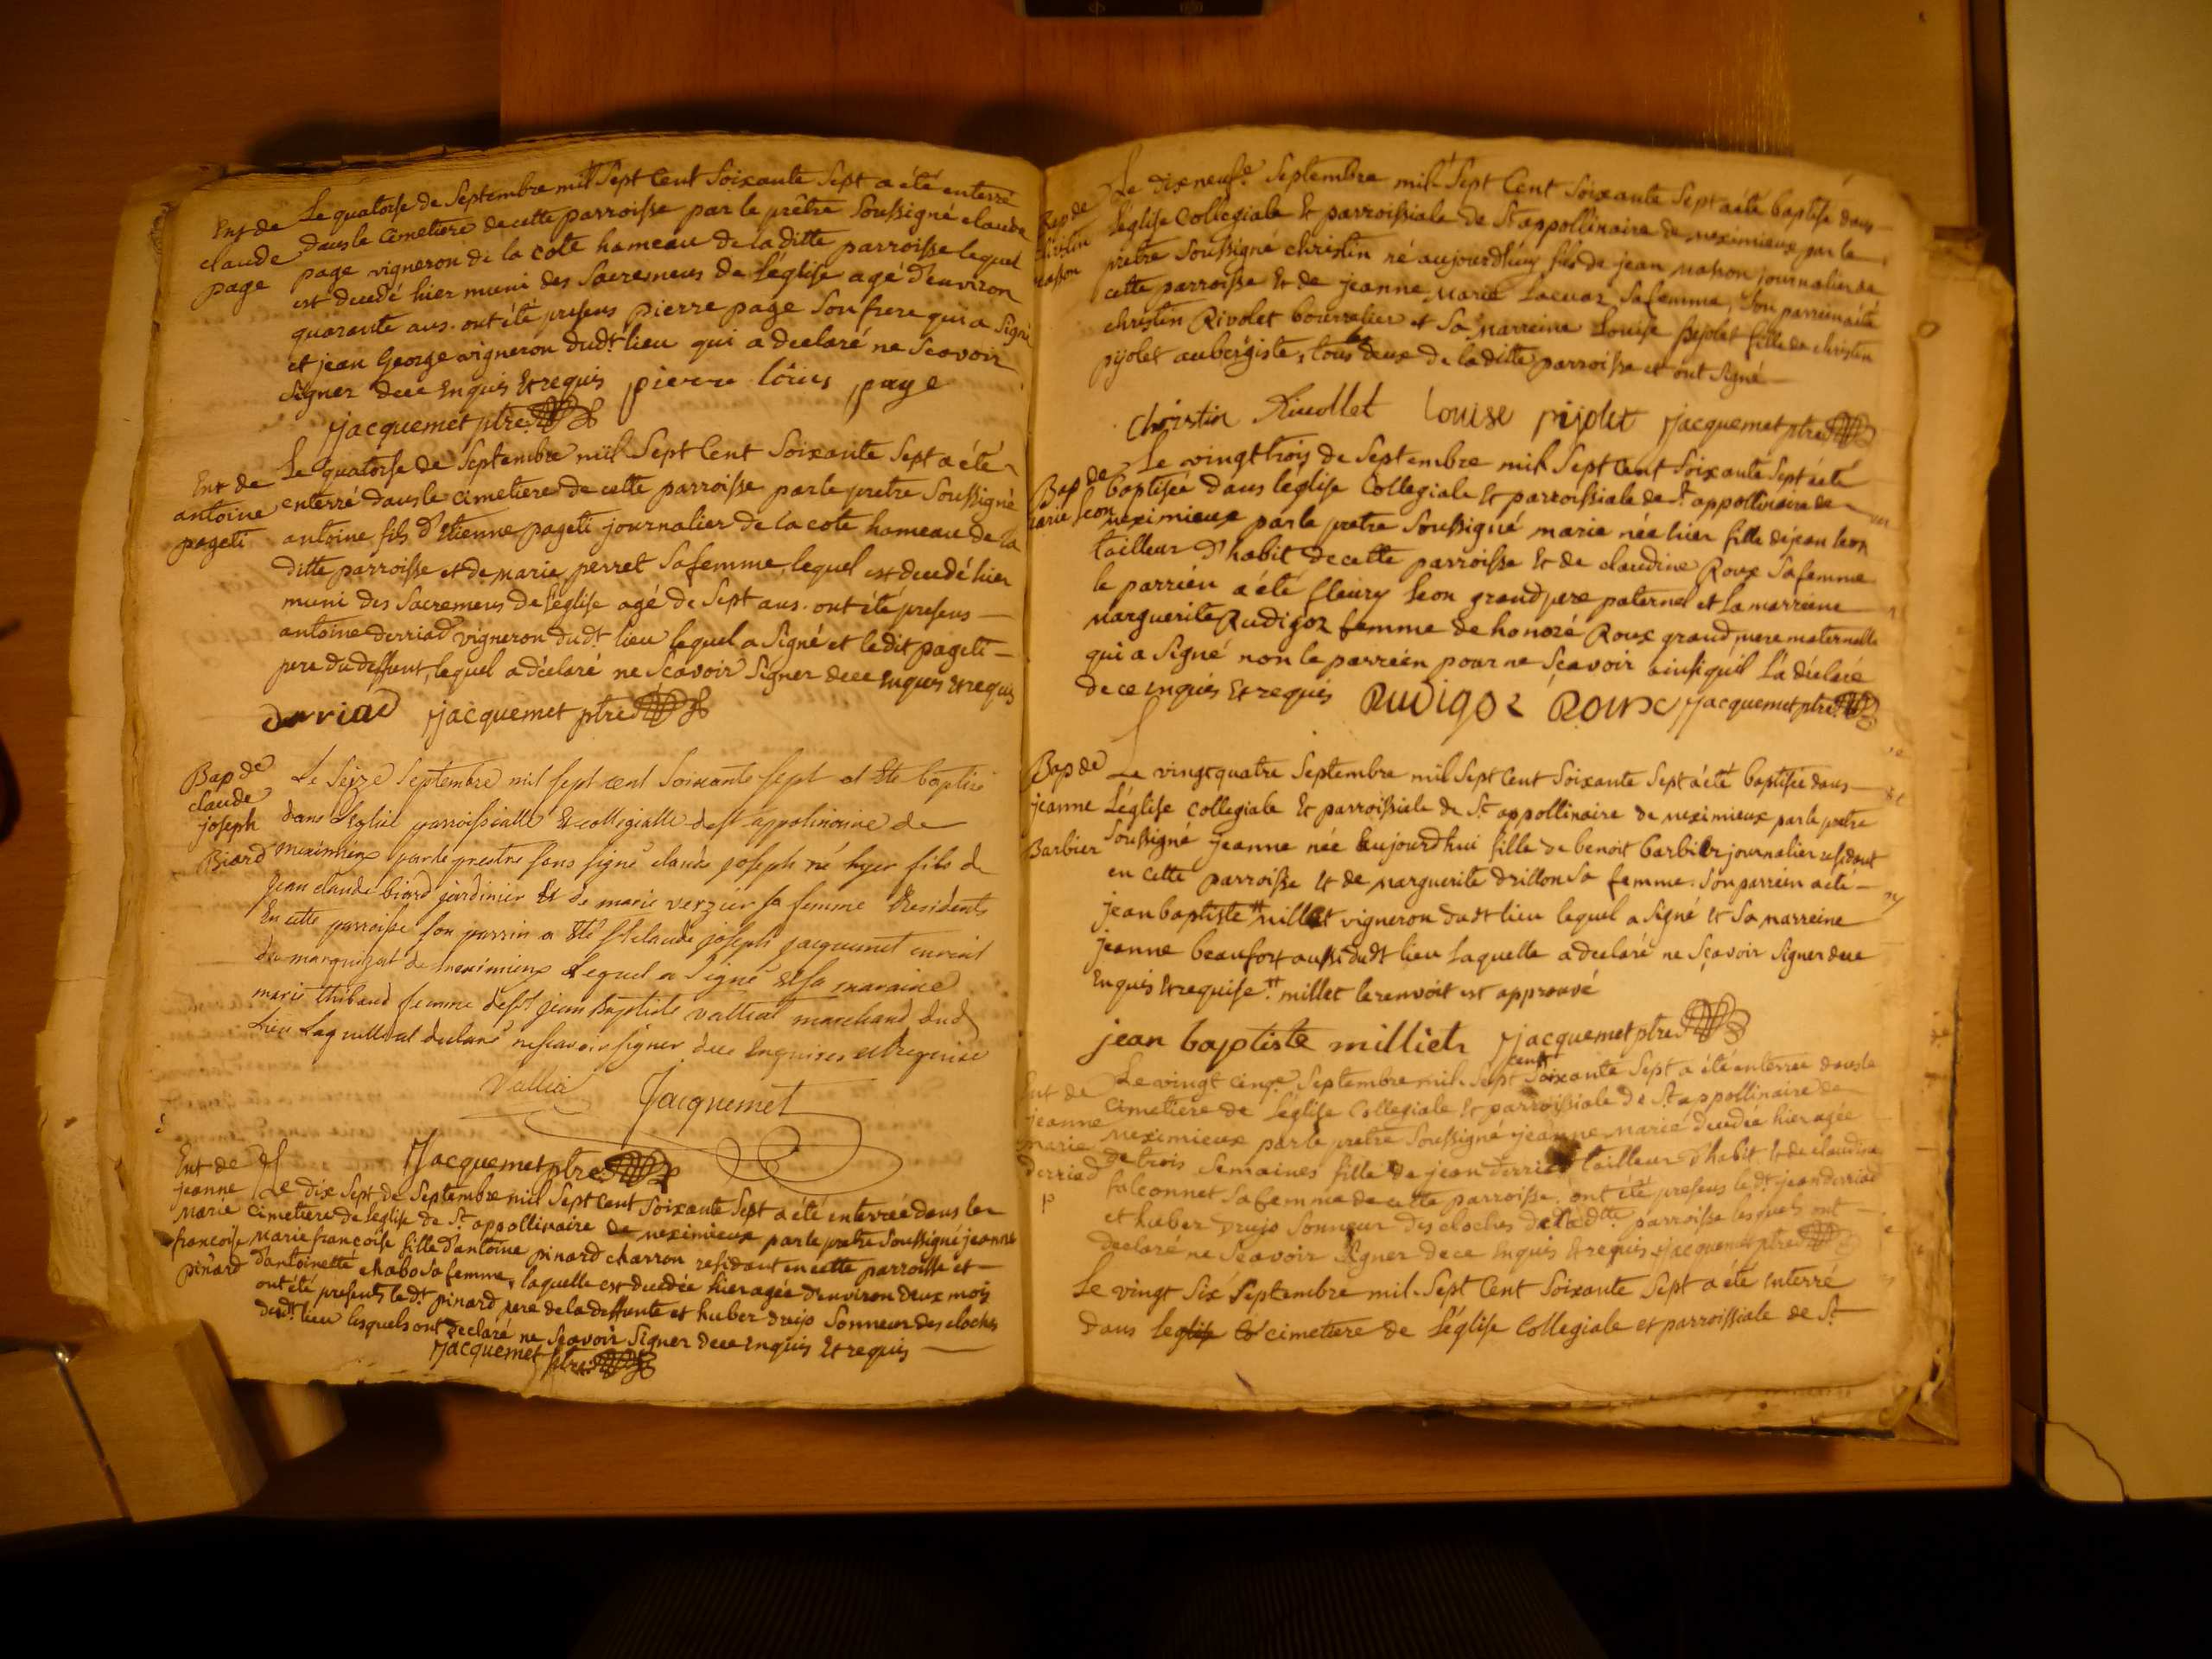 Ent de
claude
page
Le quatorse de Septembre mil Sept Cent Soixante Sept a été enterré
dans le Cimetiere de cette parroisse par le prêtre Soussigné claude
page vigneron de la cote hameau de la ditte parroisse lequel
est decedé hier muni des Sacremens de L'église agé d'environ
quarante ans. ont été presens pierre page Son frere qui a signé
et jean George vigneron dudt lieu qui a declaré ne Scavoir
Signer de ce Enquis Et requis pierre page
jacquemet ptre
Ent de
antoine
pageti
Le quatorse de Septembre mil Sept Cent Soixante Sept a été
enterré dans le cimetiere de cette parroisse par le pretre Soussigné
antoine fils d'Etienne pageti journalier de la cote hameau de la
ditte parroisse et de marie perret Sa femme, lequel est decedé hier
muni des Sacremens de l'église agé de Sept ans. ont été presens
antoine derriad vigneron dudt lieu lequel a Signé et ledit pageti
pere du deffunt, lequel a déclaré ne Scavoir Signer de ce enquis et requis
derriad jacquemet ptre
Bap de
claude
joseph
Biard
Le Seize Septembre mil sept cent Soixante sept at Eté baptisé
dans L'Eglise parroissialle Et collegialle de st appolinaire de
meximieux par le prestre sous signé claude joseph né hyer fils de
jean claude biard jardinier Et de marie verzier sa femme Residents
En cette parroisse son parrin a Eté Sr claude joseph jacquemet curial
du marquizat de meximieux Lequel a Signé Et sa maraine
marie thibaud femme de sr jean Baptiste vallial marchand dud
Lieu Laquelle at declaré ne scavoir signer de ce Enquise et Requise
Jacquemet
Jacquemet ptre
Ent de
jeanne
Marie
francoise
pinard
Le dix Sept de Septembre mil Sept Cent Soixante Sept a été enterrée dans le
cimetiere de l'eglise de St appollinaire de meximieux par le pretre Soussigné jeanne
Marie francoise fille d'antoine pinard charron residant en cette parroisse et
d'antoinette chabo Sa femme, laquelle est decedée hier agée d'environ deux mois
ont été presents le dt pinard pere de la deffunte et huber drujo Sonneur des cloches
dudt lieu lesquels ont declaré ne Scavoir Signer de ce Enquis Et requis
jacquemet ptre
Bap de
christin
masson
Le dix neufe Septembre mil Sept Cent Soixante Sept a été baptisé dans
L'église Collegiale Et parroissiale de St appollinaire de meximieux par le
pretre Soussigné christin né aujourdhuy fils de jean masson journalier de
cette parroisse Et de jeanne Marie Sa femme, Son parrein a été
christin Rivolet bourrelier et Sa marreine Louise pijolet fille de christin
pijolet aubergiste, tous les deux de la ditte parroisse et ont signé
Christin Rivollet Louise pijolet jacquemet ptre
Bap de
marie Leon
Le vingt trois de Septembre mil Sept Cent Soixante Sept a été
baptisée dans l'église Collegiale Et parroissiale de St appollinaire de
meximieux par le pretre Soussigné marie née hier fille de jean Leon
tailleur d'habit de cette parroisse Et de claudine Roux Sa femme
le parrein a été fleury Leon grand pere paternel et La marreine
Marguerite Rudigoz femme de honoré Roux grand mere maternelle
qui a Signé non le parrein pour ne Sçavoir ainsi qu'il l'a déclaré
de ce enquis Et requis RUDIGOZ ROUX jacquemet ptre
Bap de
jeanne
Barbier
Le vingt quatre Septembre mil Sept Cent Soixante Sept a été baptisée dans
L'église collegiale Et parroissiale de St appollinaire de meximieux par le pretre
Soussigné jeanne née Aujourdhui fille de benoit barbier journalier residant
en cette parroisse Et de Marguerite drillon Sa femme. Son parrein a été
jean baptiste # millet vigneron dudt lieu lequel a Signé Et Sa marreine
jeanne beaufort aussi dudt lieu Laquelle a declaré ne Sçavoir Signer de ce
Enquis Et requise # millet le renvoit est approuvé
jean baptiste milliet jacquemet ptre
Ent de
jeanne
marie
derriad
p
Le vingt cinqe Septembre mil Sept cent Soixante Sept a été enterrée dans le
cimetiere de L'église Collegiale Et parroissiale de St appollinaire de
meximieux par le pretre Soussigné jeanne Marie decedée hier agée
de trois Semaines fille de jean derriad tailleur d'habit Et de claudine
falconnet Sa femme de cette parroisse. ont été presens le dt jean derriad
et huber drujo Sonneur des cloches de la dtte parroisse lesquels ont
declaré ne Scavoir Signer de ce Enquis Et requis jacquemet ptre
Le vingt Six Septembre mil Sept Cent Soixante Sept a été enterré
dans le cimetiere de L'église Collegiale et parroissiale de St